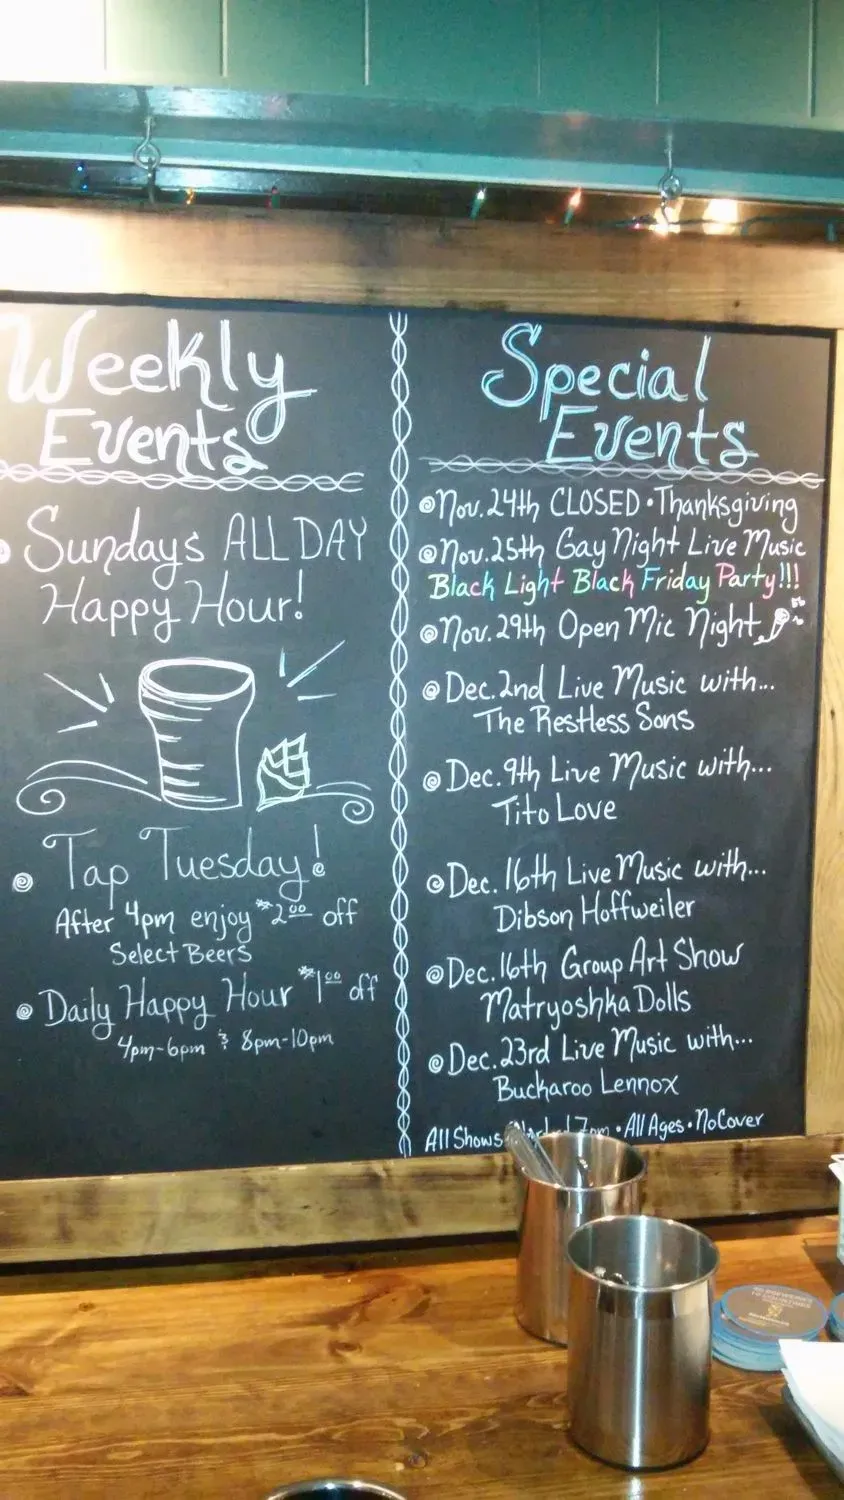 Weekly
Events
Sundays ALL DAY
Happy Hour!
Tap Tuesday!
After 4pm enjoy $2.00 off
Select Beers
Daily Happy Hour $1.00 off
4pm-6pm & 8pm-10pm
Special
Events
Nov. 24th CLOSED • Thanksgiving
Nov. 25th Gay Night Live Music
Black Light Black Friday Party!!!
Nov. 29th Open Mic Night
Dec. 2nd Live Music with...
The Restless Sons
Dec. 9th Live Music with...
Tito Love
Dec. 16th Live Music with...
Dibson Hoffweiler
Dec. 16th Group Art Show
Matryoshka Dolls
Dec. 23rd Live Music with...
Buckaroo Lennox
All Shows 7pm • All Ages • No Cover